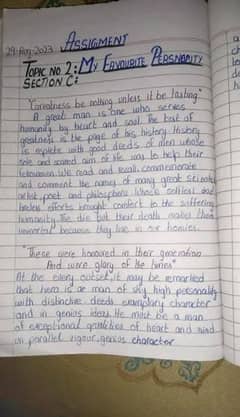 29-Aug-2023 ASSIGMENT
TOPIC NO 2: MY FAVOURITE PERSNALITY
SECTION C:
"Greatness be nothing unless it be lasting"
A great man is one who serves
humanity by heart and soul. The test of
greatness is the page of his history. History
is replete with good deeds of men whose
sole and sacred aim of life was to help their
fellowmen. We read and recall, commemorate
and comment the names of many great
artist, poet and philosophers whose
efforts brought comfort to the suffering
humanity. The die but their death makes them
immortal because they live in our
"These were honoured in their generation
And were glory of the times"
At the very outset it may be remarked
that hero is a man of sky high personality
with distinctive deeds exemplary character
and in genius ideas. He must be a man
of exceptional qualities of heart and mind
un parallel vigour, genius character